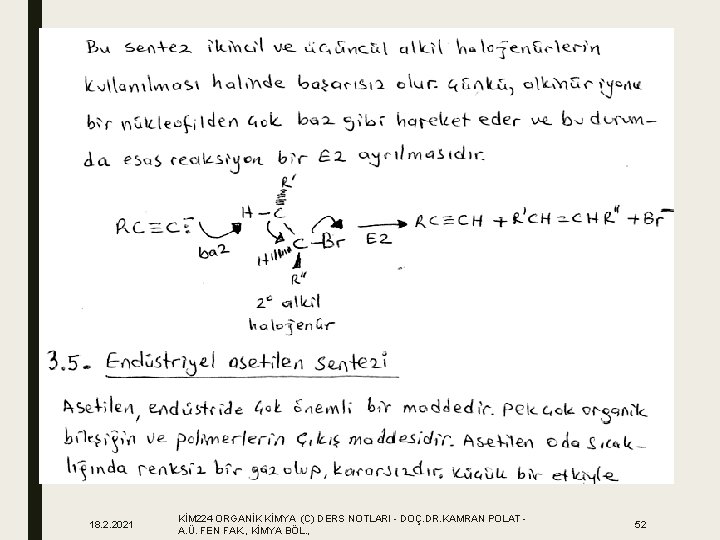 Bu sentez ikincil ve üçüncül alkil halojenürlerin
kullanılması halinde başarısız olur. Çünkü, alkinür iyonu
bir nükleofilden çok baz gibi hareket eder ve bu durum-
da esas reaksiyon bir E2 ayrılmasıdır.
R'
H-C
RC≡C:⁻ C-Br E2 RC≡CH + R'CH=CHR" + Br⁻
baz H
R"
2° alkil
halojenür
3.5. Endüstriyel asetilen sentezi
Asetilen, endüstride çok önemli bir maddedir. Pek çok organik
bileşiğin ve polimerlerin çıkış maddesidir. Asetilen oda sıcak-
lığında renksiz bir gaz olup, kararsızdır. Küçük bir etkiyle
18.2.2021
KİM224 ORGANİK KİMYA (C) DERS NOTLARI - DOÇ.DR.KAMRAN POLAT -
A.Ü. FEN FAK., KİMYA BÖL.,
52